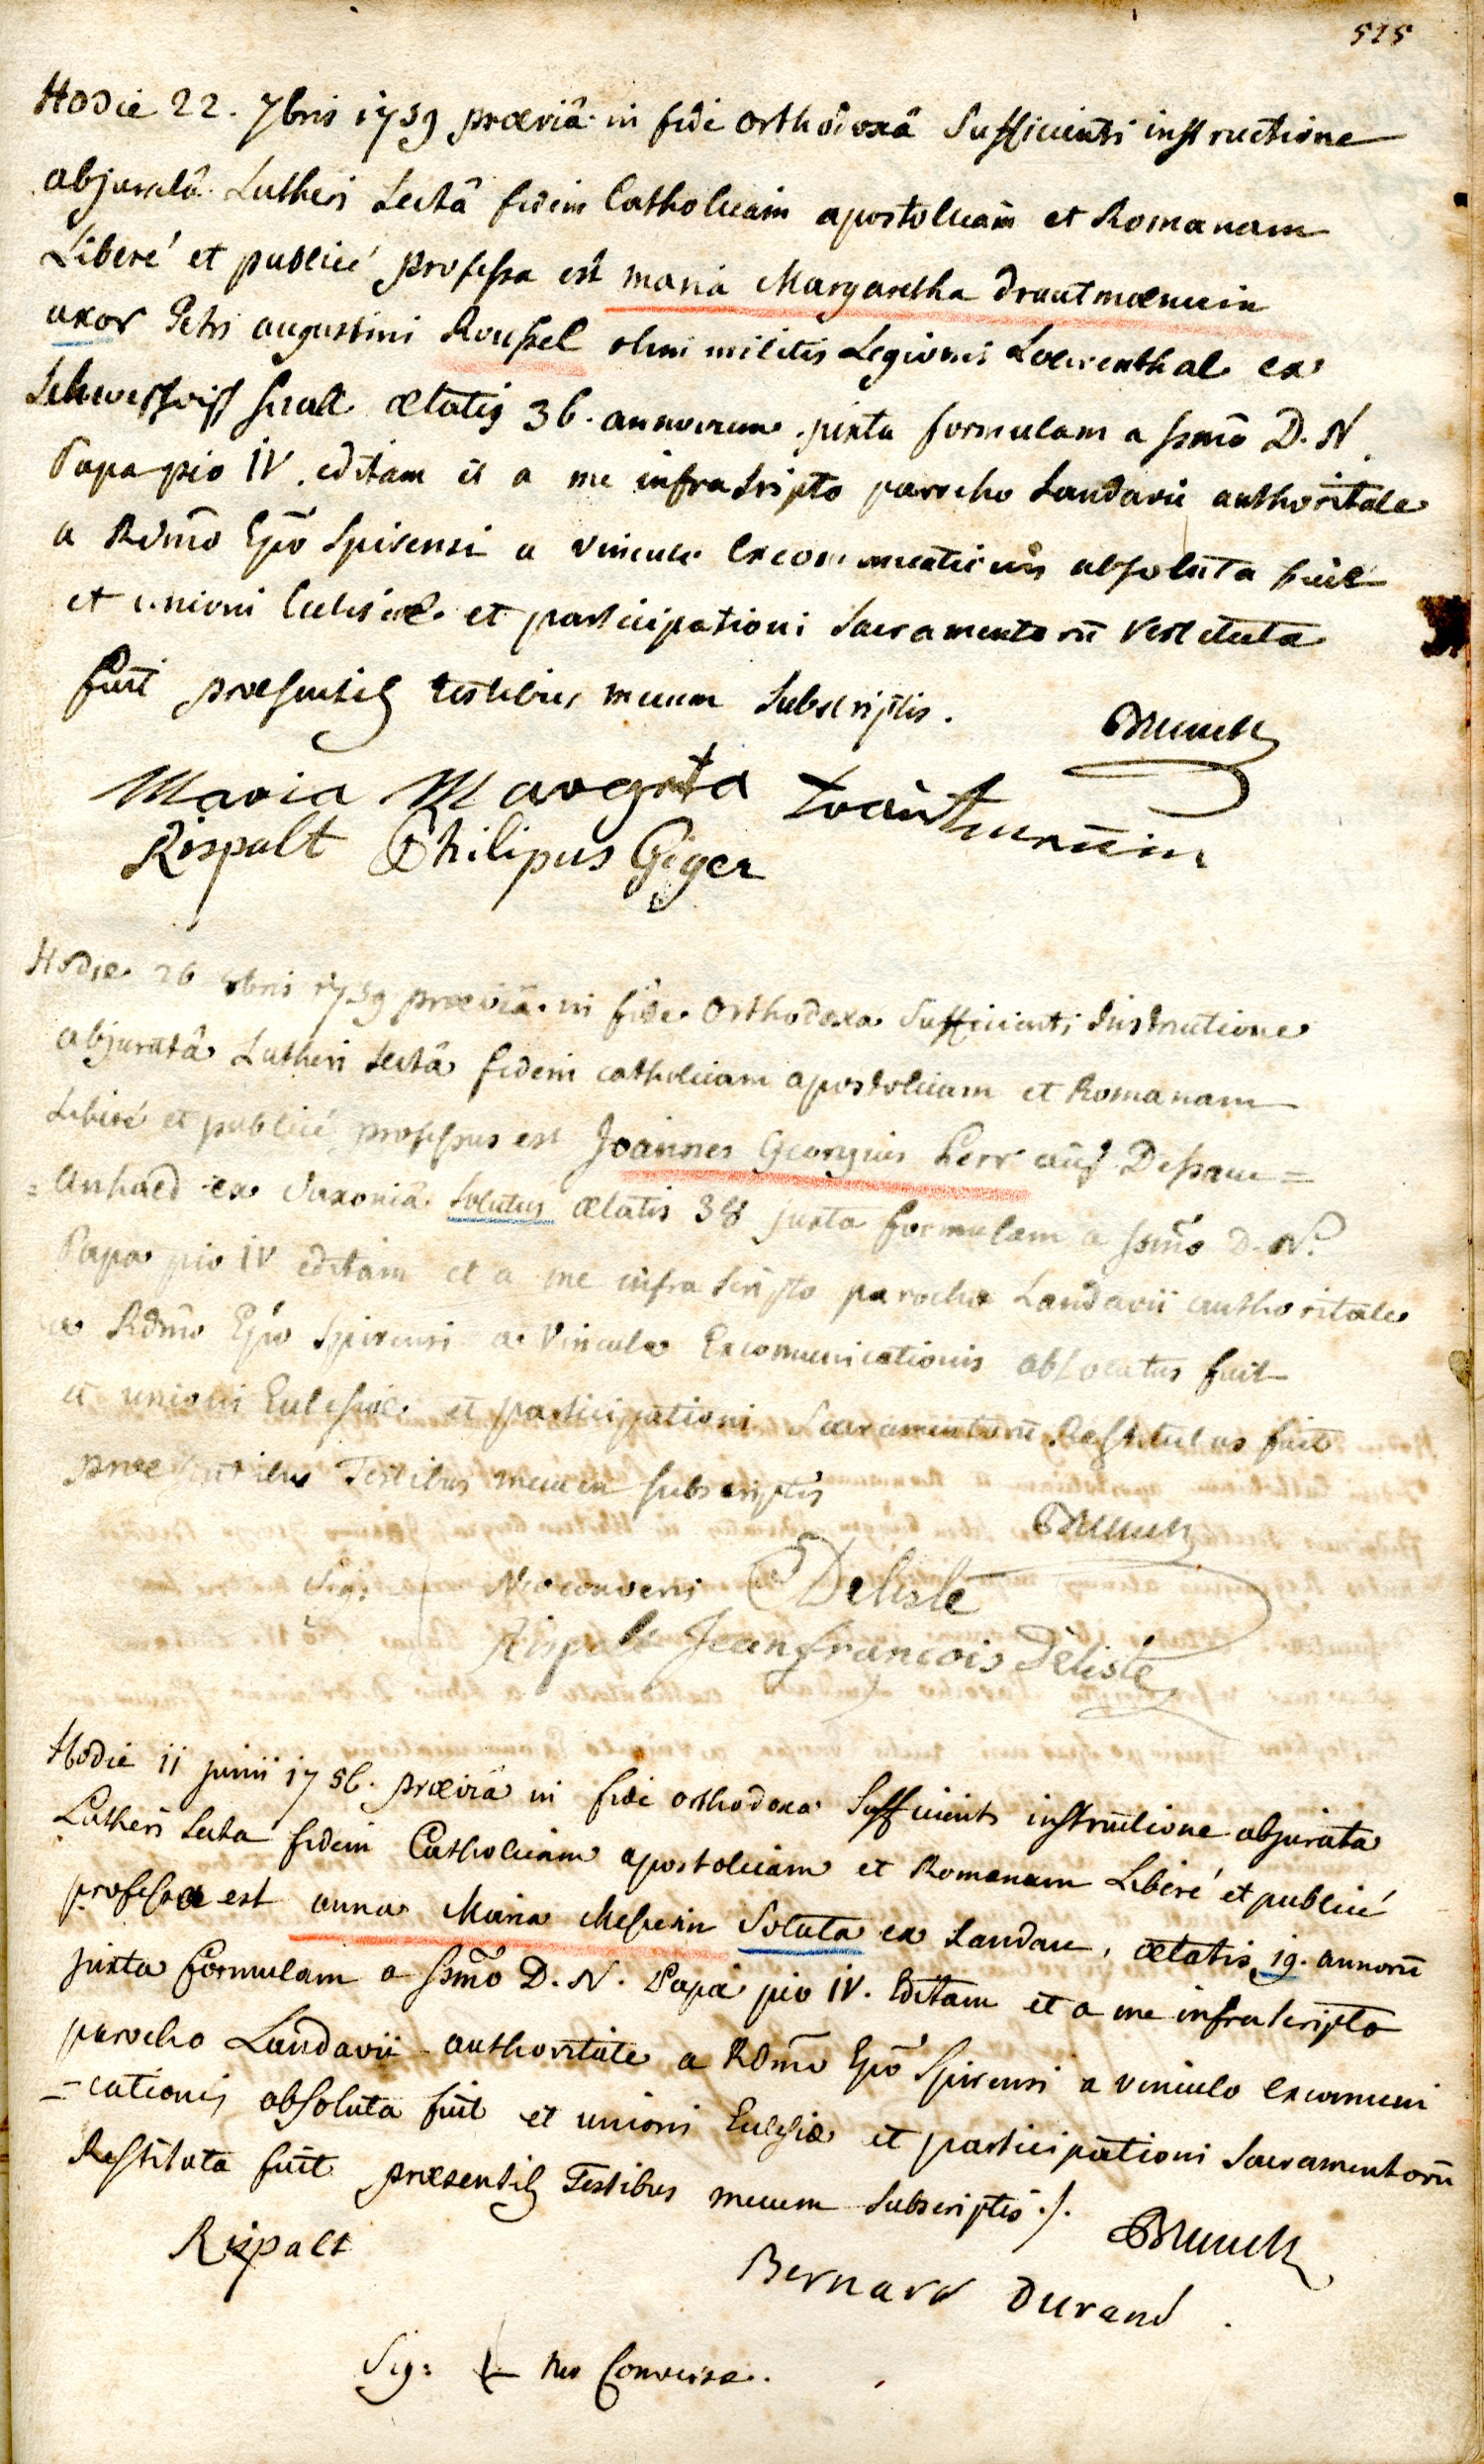 515
Hodie 22. 7bris 1759 præviâ in fide orthodoxâ Sufficienti instructione
abjuratâ Lutheri Sectâ fidem Catholicam apostolicam et Romanam
Liberé et publicé professa est maria Margaretha drautmænnin
uxor Petri augustini Roussel olim militis Legionis Loewenthal ex
aetatis 36. annorum. juxta formulam a ssmo D. N.
Papa pio IV. editam et a me infra scripto parocho Landavii authoritate
a Rdmo Epo Spirensi a vinculo excommunicationis absoluta fuit
et unioni Ecclesiæ et participationi Sacramentorū restituta
fuit præsentib testibus mecum Subscriptis.
Brunck
Maria Margreta
Rispalt Philipus Giger
Hodie 26 1759 præviâ in fide Orthodoxa Sufficienti Instructione
abjuratâ Lutheri sectâ fidem catholicam apostolicam et Romanam
Liberé et publicé professus est Joannes Georgius Herr auß Dessau =
= Anhald ex Saxoniâ Solutus ætatis 38 juxta formulam a ssmo D. N.
Papa pio IV editam et a me infra scripto parocho Landavii authoritate
a Rdmo Epo Spirensi a Vinculo Excomunicationis absolutus fuit
et unioni Ecclesiæ et participationi Sacramentorū Restitutus fuit
præsentibus Testibus mecum subscriptis
Brunck
Sig: Neoconversi Delisle
Rispalt Jean francois Delisle
Hodie 11 junii 1756. præviâ in fide orthodoxa Sufficienti instructione abjurata
Lutheri Secta fidem Catholicam apostolicam et Romanam Liberé et publicé
professa est anna Maria Messerin Soluta ex Landau, ætatis 19. annorū
juxta formulam a ssmo D. N. Papa pio IV. Editam et a me infra scripto
parocho Landavii authoritate a Rdmo Epo Spirensi a vinculo excomuni
= cationis absoluta fuit et unioni Ecclesiæ et participationi Sacramentorū
Restituta fuit præsentib Testibus mecum Subscriptis ./.
Brunck
Rispalt
Bernard Durand.
Sig: neo Conversæ.